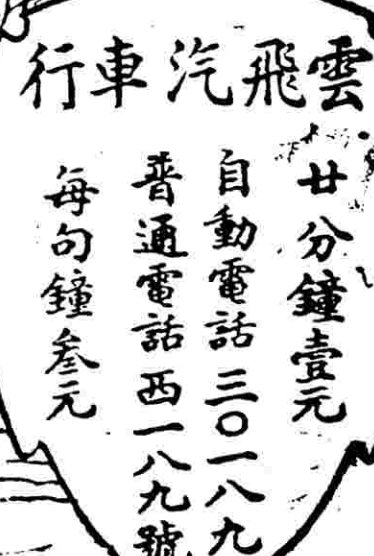 雲飛汽車行
廿分鐘壹元
自動電話三〇一八九
普通電話西一八九號
每句鐘叁元